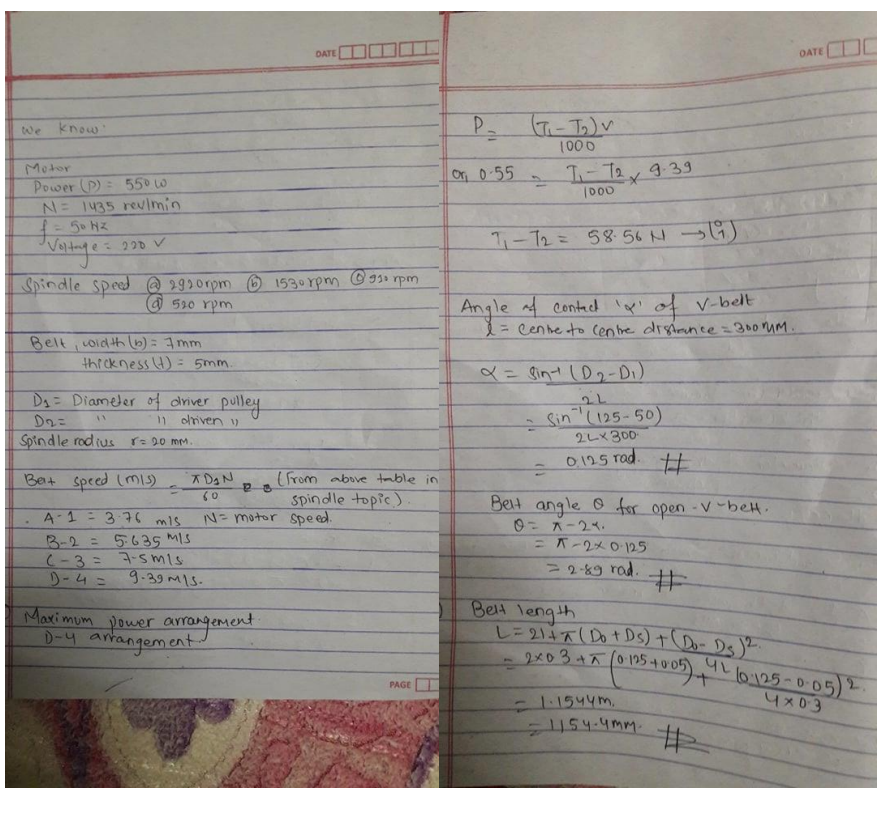 DATE
We know:
Motor
Power (P) = 550 W
N = 1435 rev/min
f = 50 Hz
Voltage = 220 V
Spindle speed ⓐ 2920rpm ⓑ 1530rpm ⓒ 920 rpm
ⓓ 520 rpm
Belt, width (b) = 7mm
thickness (t) = 5mm.
D1 = Diameter of driver pulley
D2 = " " driven "
Spindle radius r = 20 mm.
Belt speed (m/s) = πD1N / 60 = (From above table in
spindle topic).
A-1 = 3.76 m/s N = motor speed.
B-2 = 5.635 m/s
C-3 = 7.5 m/s
D-4 = 9.39 m/s.
Maximum power arrangement
D-4 arrangement
PAGE
DATE
P = (T1 - T2) v / 1000
or, 0.55 = T1 - T2 / 1000 × 9.39
T1 - T2 = 58.56 N → (i)
Angle of contact 'α' of V-belt
l = centre to centre distance = 300mm.
α = sin-1 (D2 - D1) / 2L
= sin-1 (125 - 50) / 2L×300
= 0.125 rad. #
Belt angle θ for open-v-belt.
θ = π - 2α.
= π - 2×0.125
= 2.89 rad. #
) Belt length
L = 2l + π (Do + Ds) + (Do - Ds)2 / 4L
= 2×0.3 + π (0.125+0.05) + (0.125 - 0.05)2 / 4×0.3
= 1.1544m.
= 1154.4mm. #